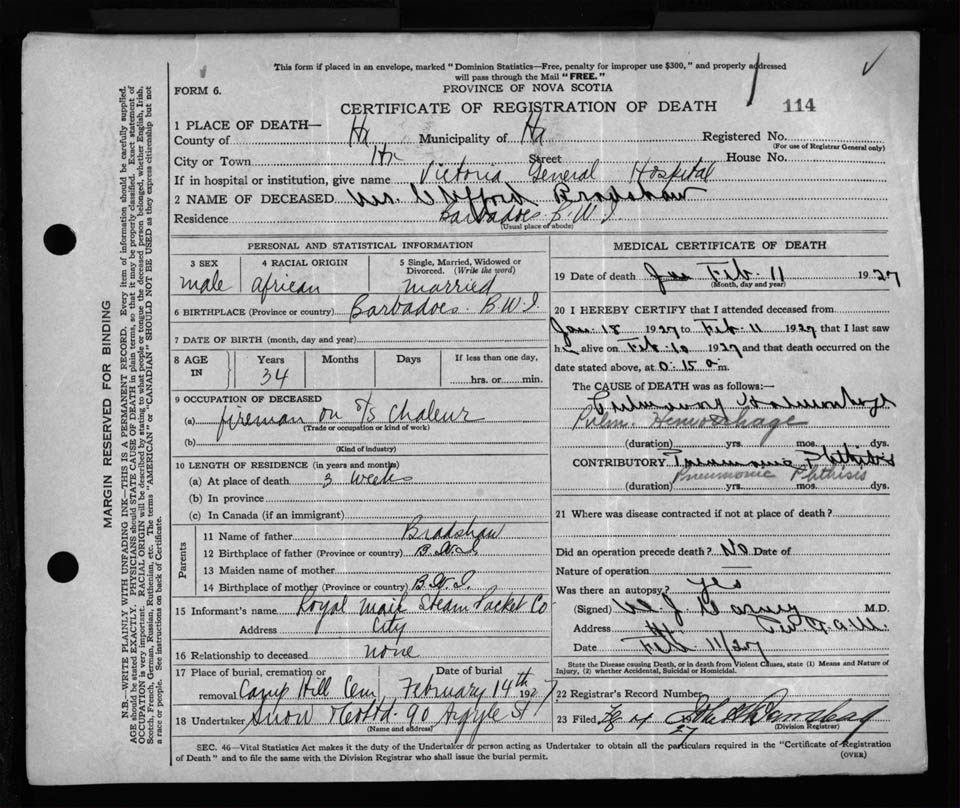 This form if placed in an envelope, marked "Dominion Statistics—Free, penalty for improper use $300," and properly addressed
will pass through the Mail "FREE."
FORM 6.
PROVINCE OF NOVA SCOTIA
CERTIFICATE OF REGISTRATION OF DEATH
114
1 PLACE OF DEATH—
County of Hx Municipality of Hx Registered No.
(For use of Registrar General only)
City or Town Hx Street House No.
If in hospital or institution, give name Victoria General Hospital
2 NAME OF DECEASED Clifford Bradshaw
Residence Barbadoes B.W.I.
(Usual place of abode)
PERSONAL AND STATISTICAL INFORMATION
3 SEX male
4 RACIAL ORIGIN african
5 Single, Married, Widowed or
Divorced. (Write the word)
married
6 BIRTHPLACE (Province or country) Barbadoes. B.W.I
7 DATE OF BIRTH (month, day and year)
8 AGE IN Years Months Days If less than one day,
34 hrs. or min.
9 OCCUPATION OF DECEASED
(a) fireman on s/s Chaleur
(Trade or occupation or kind of work)
(b)
(Kind of industry)
10 LENGTH OF RESIDENCE (in years and months)
(a) At place of death 3 weeks
(b) In province
(c) In Canada (if an immigrant)
Parents
11 Name of father Bradshaw
12 Birthplace of father (Province or country) B.W.I
13 Maiden name of mother
14 Birthplace of mother (Province or country) B.W.I.
15 Informant's name Royal Mail Steam Packet Co
Address City
16 Relationship to deceased none
17 Place of burial, cremation or Date of burial
removal Camp Hill Cem, February 14th 1927
18 Undertaker Snow 90 Argyle St
(Name and address)
MEDICAL CERTIFICATE OF DEATH
19 Date of death Feb. 11 1927
(Month, day and year)
20 I HEREBY CERTIFY that I attended deceased from
Jan. 18 1927 to Feb 11 1927 that I last saw
h alive on Feb 10 1927 and that death occurred on the
date stated above, at 0.15 a.m.
The CAUSE of DEATH was as follows:
Pulmonary
Pulm. Hemorrhage
(duration) yrs. mos. dys.
CONTRIBUTORY Pneumonic Phthisis
Pneumonic Phthisis
(duration) yrs. mos. dys.
21 Where was disease contracted if not at place of death?
Did an operation precede death? No Date of
Nature of operation
Was there an autopsy? yes
(Signed) M.D.
Address
Date Feb 11/27
State the Disease causing Death, or in death from Violent Causes, state (1) Means and Nature
of Injury, (2) whether Accidental, Suicidal or Homicidal.
22 Registrar's Record Number
23 Filed
27
(Division Registrar)
SEC. 46—Vital Statistics Act makes it the duty of the Undertaker or person acting as Undertaker to obtain all the particulars required in the "Certificate of Registration
of Death" and to file the same with the Division Registrar who shall issue the burial permit.
(OVER)
MARGIN RESERVED FOR BINDING
N.B.—WRITE PLAINLY WITH UNFADING INK—THIS IS A PERMANENT RECORD. Every item of information should be carefully supplied.
AGE should be stated EXACTLY. PHYSICIANS should STATE CAUSE OF DEATH in plain terms, so that it may be properly classified. Exact statement of
OCCUPATION is very important. RACIAL ORIGIN will be described by stating to what people or tongue the deceased person belonged, whether English, Irish,
Scotch, French, German, Russian, Ruthenian, etc. The terms "AMERICAN" or "CANADIAN" SHOULD NOT BE USED as they express citizenship but not
a race or people. See instructions on back of Certificate.